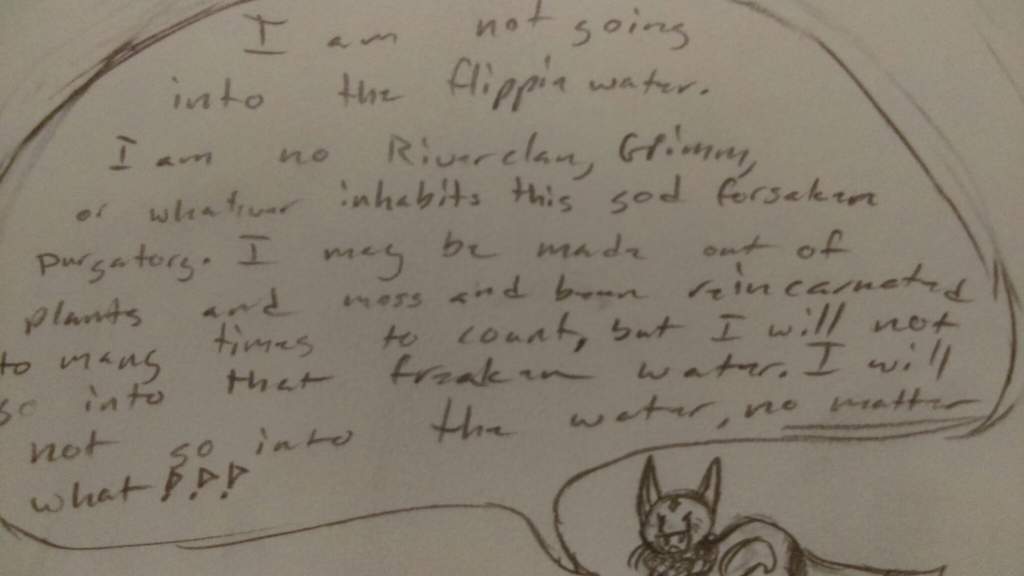 I am not going
into the flippin water.
I am no Riverclan, Grimm,
or whatever inhabits this god forsaken
purgatory. I may be made out of
plants and moss and been reincarnated
to many times to count, but I will not
go into that freaken water. I will
not go into the water, no matter
what!!!